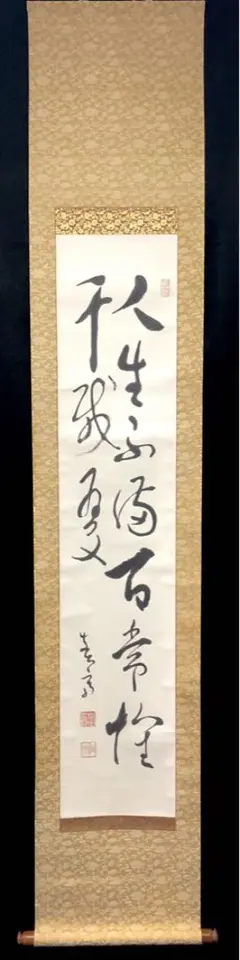 人生不満百常懐
千歳憂